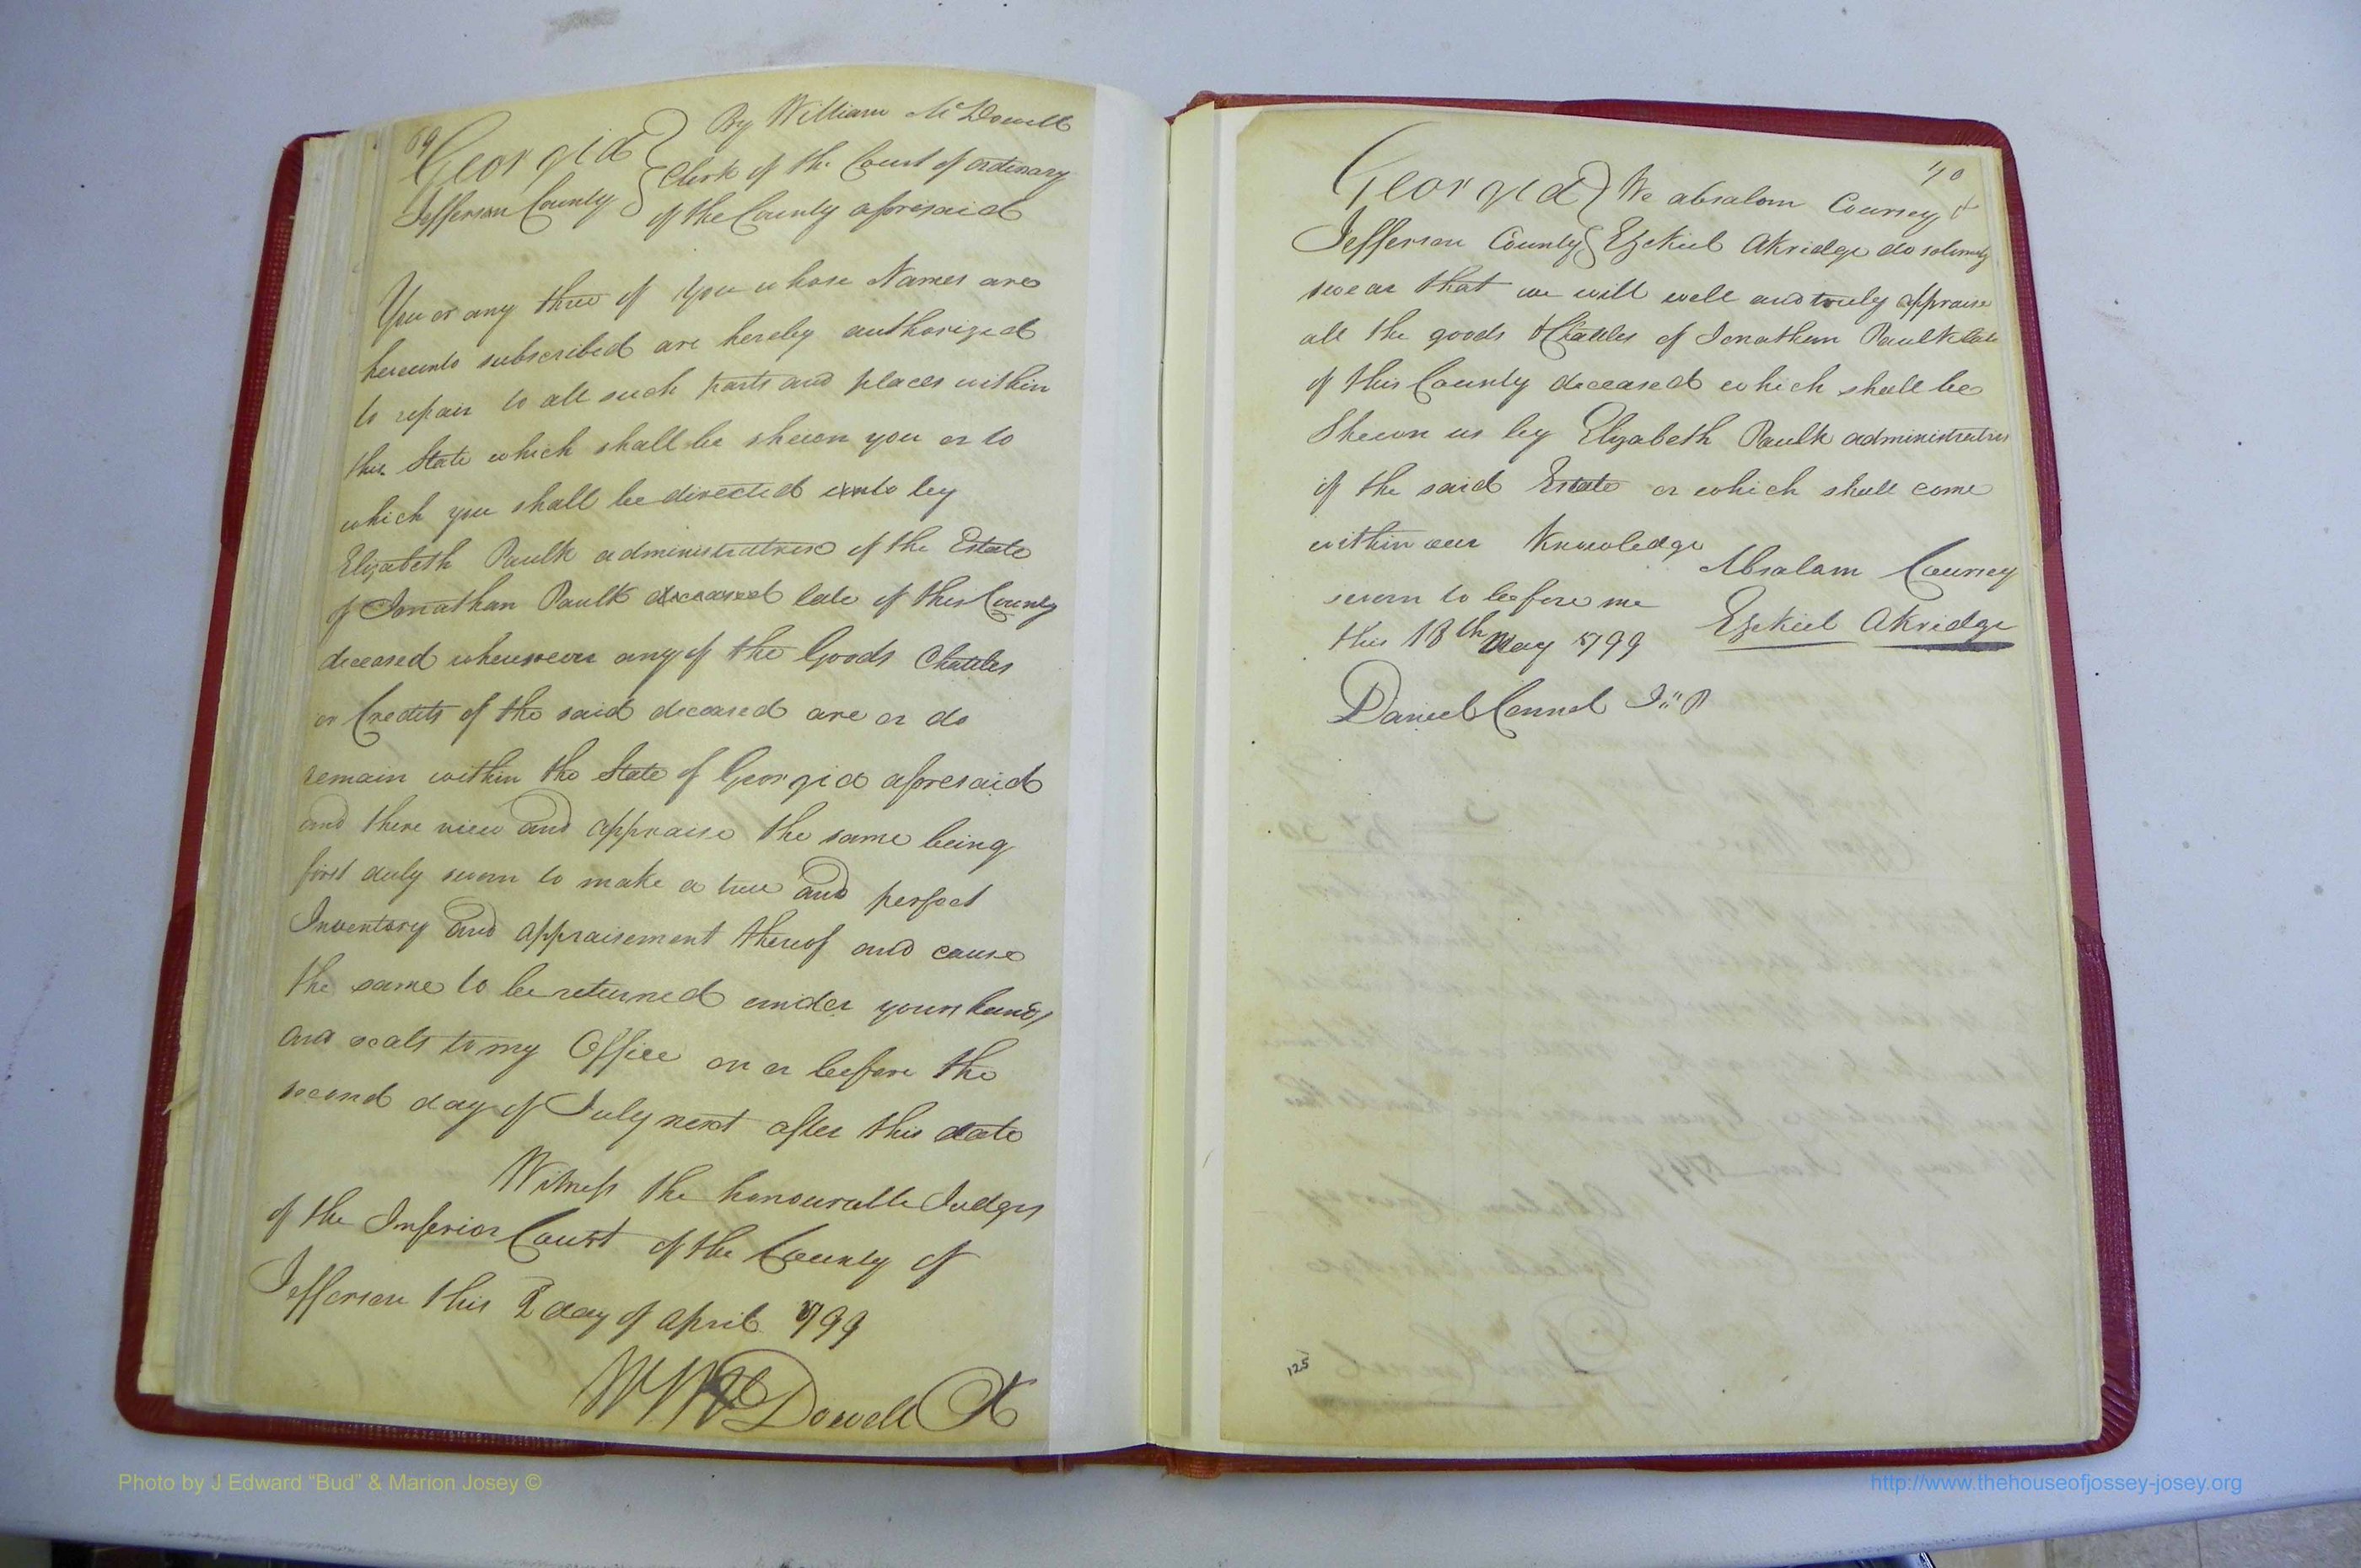 69
Georgia } By William McDowell
Jefferson County } Clerk of the Court of ordinary
of the County aforesaid
You or any three of you whose Names are
hereunto subscribed are hereby authorized
to repair to all such parts and places within
this State which shall be shewn you or to
which you shall be directed unto by
Elizabeth Paulk administratrix of the Estate
of Jonathan Paulk deceased late of this County
deceased wheresoever any of the Goods Chattles
or Credits of the said deceased are or do
remain within the State of Georgia aforesaid
and there view and appraise the same being
first duly sworn to make a true and perfect
Inventory and appraisement thereof and cause
the same to be returned under your hands
and seals to my Office on or before the
second day of July next after this date
Witness the honourable Judges
of the Inferior Court of the County of
Jefferson this 2 day of april 1799
Wm McDowell
70
Georgia } We absalom Coursey &
Jefferson County } Ezekiel Akridge do solemnly
swear that we will well and truly appraise
all the goods & Chattles of Jonathan Paulk late
of this County deceased which shall be
Shewn us by Elizabeth Paulk administratrix
of the said Estate or which shall come
within our Knowledge
Absalom Coursey
sworn to before me
Ezekiel Akridge
this 18th May 1799
Daniel Connel J"P
125
Photo by J Edward “Bud” & Marion Josey ©
http://www.thehouseofjossey-josey.org